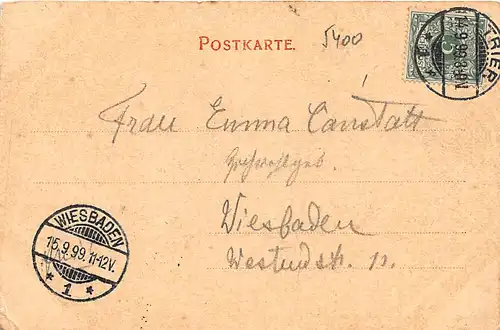 POSTKARTE.
5400
TRIER
Frau Emma Canstatt
Hochwohlgeb.
Wiesbaden
Westendstr. 11.
WIESBADEN
15.9.99.11-12V.
* 1 *